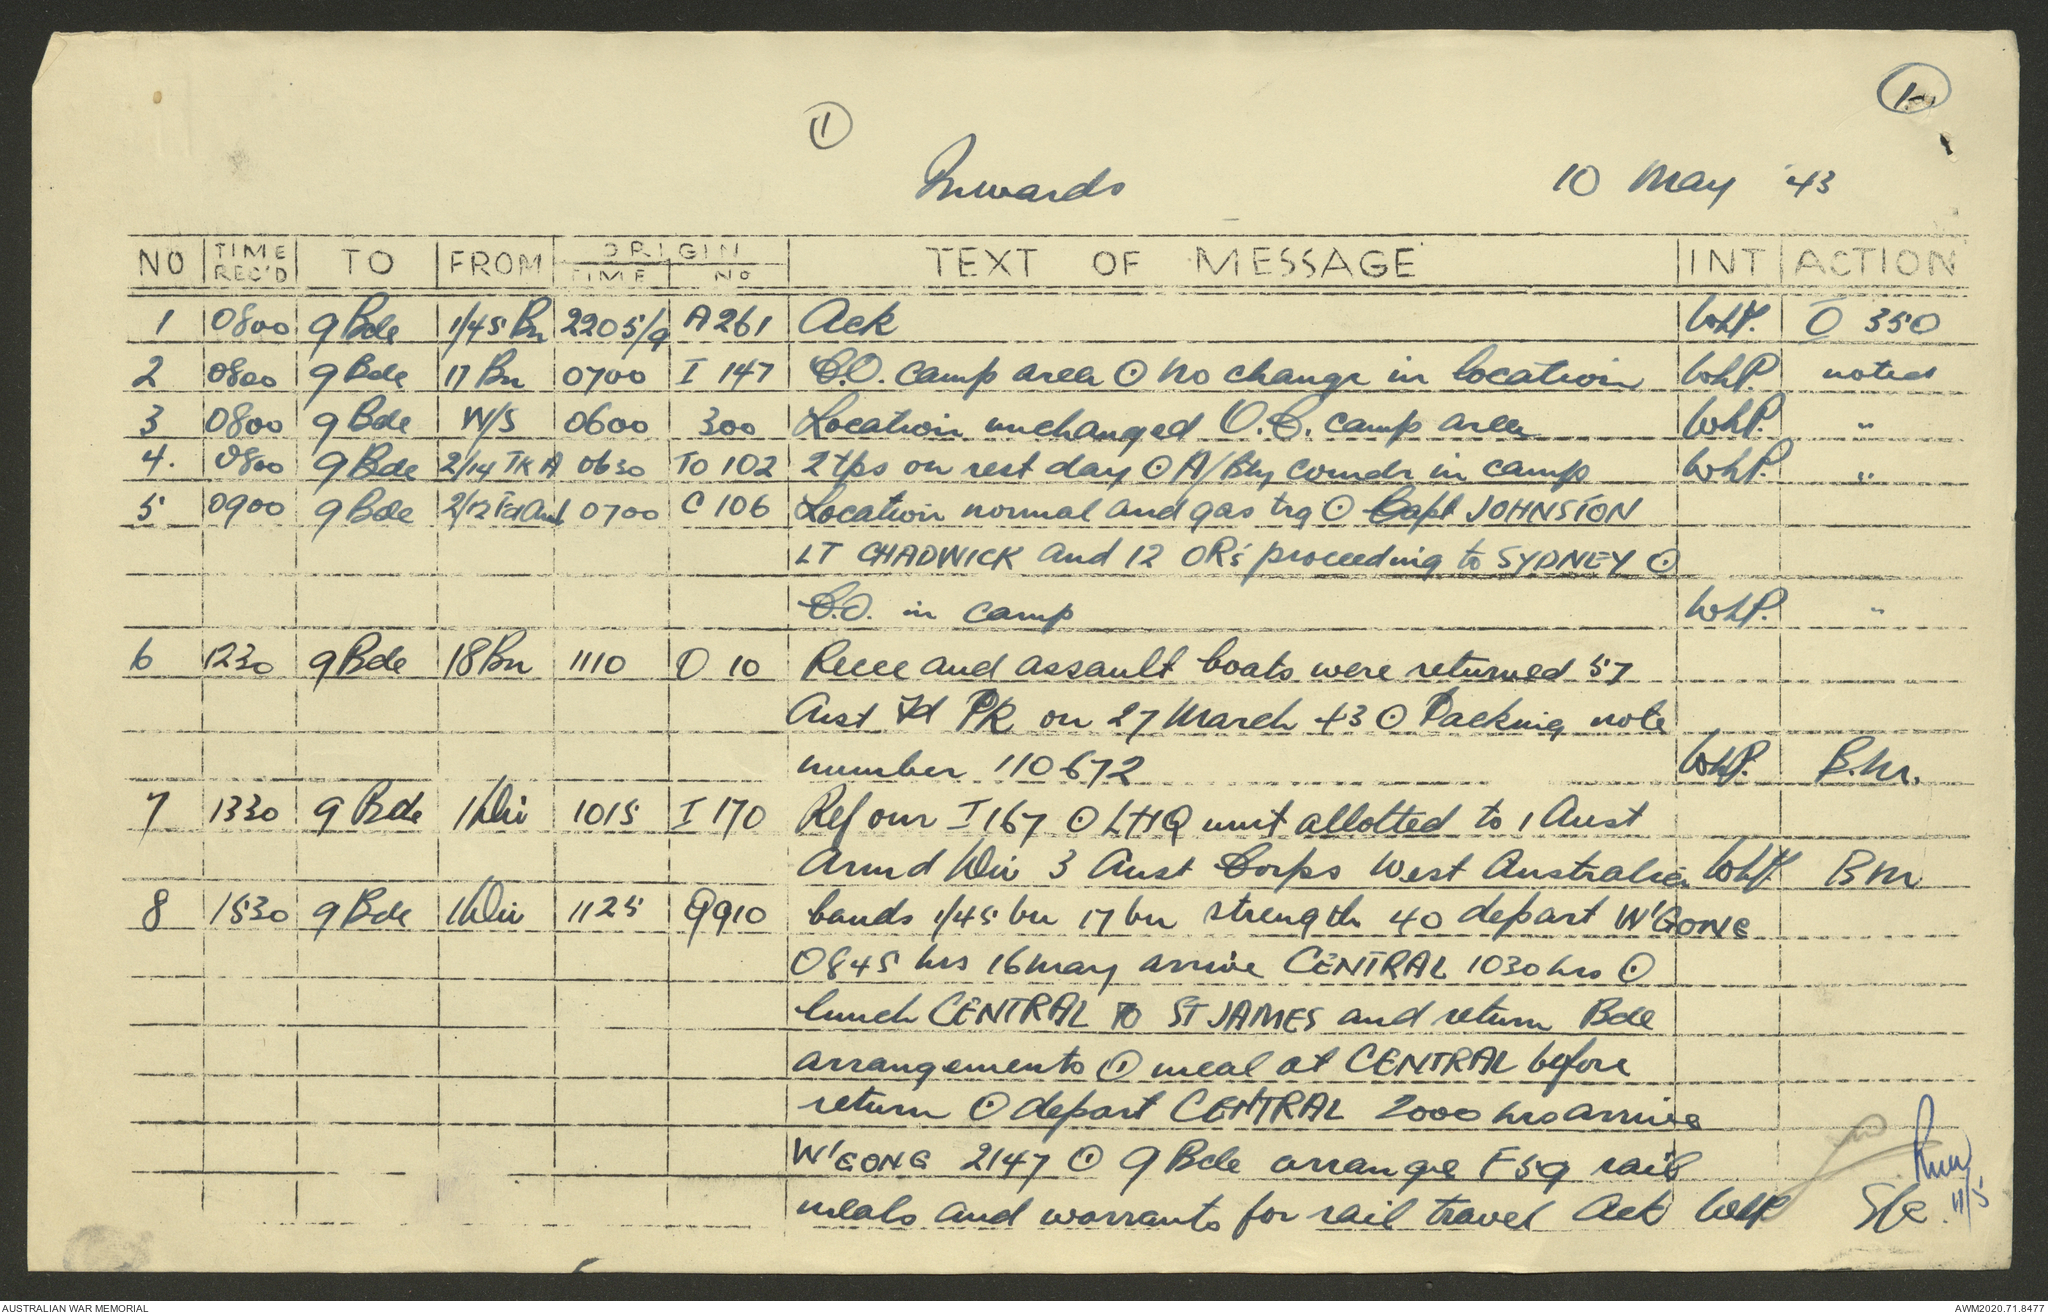 1
1
Inwards 10 May '43
NO TIME REC'D TO FROM ORIGIN TIME No TEXT OF MESSAGE INT ACTION
1 0800 9 Bde 1/45 Bn 2205/9 A 261 Ack WhP. O 350
2 0800 9 Bde 17 Bn 0700 I 147 C.O. camp area ⊙ no change in location WhP. noted
3 0800 9 Bde W/S 0600 300 Location unchanged O.C. camp area WhP. "
4. 0800 9 Bde 2/14 TK A 0630 TO 102 2 tps on rest day ⊙ A/Bty comdr in camp WhP. "
5 0900 9 Bde 2/12 Fd Amb 0700 C 106 Location normal and gas trg ⊙ Capt JOHNSTON
LT CHADWICK and 12 OR's proceeding to SYDNEY ⊙
C.O. in camp WhP. "
6 1230 9 Bde 18 Bn 1110 O 10 Recce and assault boats were returned 57
Aust Fd PK on 27 March 43 ⊙ Packing note
number 110672 WhP. B.M.
7 1330 9 Bde 1 Div 1015 I 170 Ref our I 167 ⊙ LHQ unit allotted to 1 Aust
Armd Div 3 Aust Corps West Australia WhP. BM
8 1530 9 Bde 1 Div 1125 Q910 bands 1/45 bn 17 bn strength 40 depart W'GONG
0845 hrs 16 May arrive CENTRAL 1030 hrs ⊙
lunch CENTRAL TO ST JAMES and return Bde
arrangements ⊙ meal at CENTRAL before
return ⊙ depart CENTRAL 2000 hrs arrive
W'GONG 2147 ⊙ 9 Bde arrange F59 rail
meals and warrants for rail travel Ack WhP S/C. 11/5
AUSTRALIAN WAR MEMORIAL AWM2020.71.8477